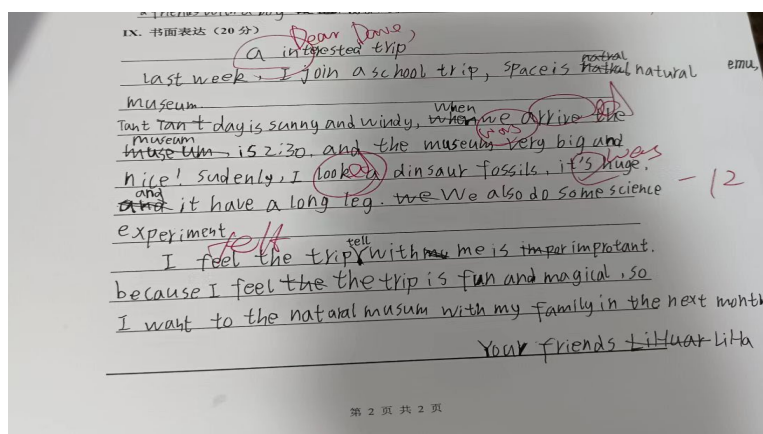 IX. 书面表达（20 分）
Dear Dave,
a interested trip
Last week, I join a school trip, space is natral natral natural emu,
museum.
Tant Tant day is sunny and windy, when when we arrive ed the
was
museum museum is 2:30. and the museum very big and
nice! sudenly, I look ed a dinsaur fossils, it's huge. was
and and it have a long leg. we We also do some science
-12
experiment
felt
I feel the trip tell with me is impor improtant.
because I feel the the trip is fun and magical, so
I want to the nataral musum with my family in the next month
Your friends LiHuar LiHa
第 2 页 共 2 页